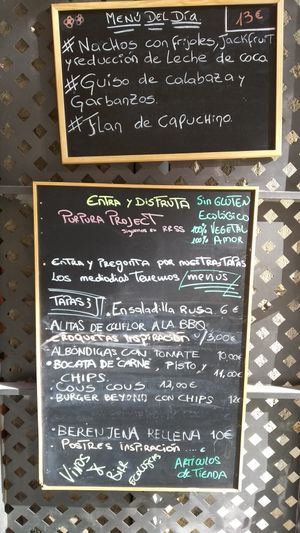 MENÚ DEL DÍA 13€
# NACHOS CON FRIJOLES, JACKFRUIT
Y REDUCCIÓN DE LECHE DE COCO.
# GUISO DE CALABAZA Y
GARBANZOS.
# FLAN DE CAPUCHINO.
ENTRA Y DISFRUTA
PÚRPURA PROJECT
SIGUENOS EN RRSS
SIN GLUTEN
ECOLÓGICO
100% VEGETAL
100% AMOR
• ENTRA Y PREGUNTA POR NUESTRAS TAPAS
LOS MEDIODIAS TENEMOS MENÚS
TAPAS 3
• ENSALADILLA RUSA 6 €
ALITAS DE COLIFLOR A LA BBQ
CROQUETAS INSPIRACIÓN 3,00€
• ALBÓNDIGAS CON TOMATE 10,00€
• BOCATA DE CARNE, PISTO, Y
CHIPS 11,00€
COUS COUS 12,00€
• BURGER BEYOND CON CHIPS 12€
• BERENJENA RELLENA 10€
POSTRES INSPIRACIÓN ....€
VINOS
BAR
ARTÍCULOS
DE TIENDA